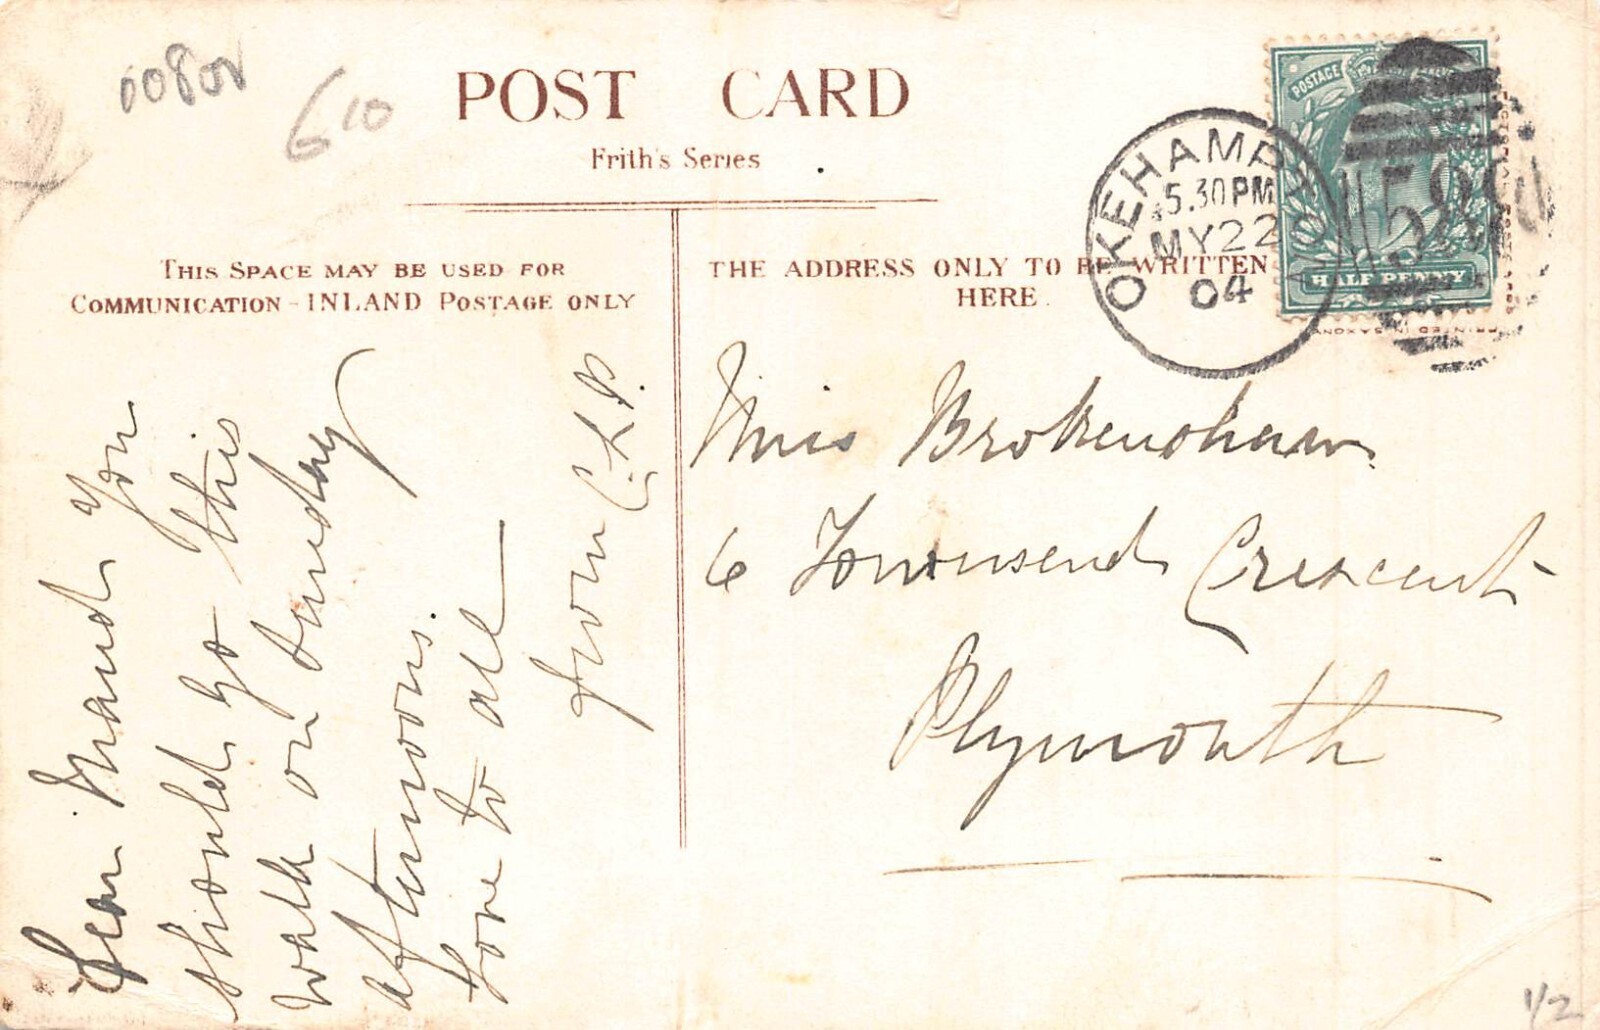 00800
610
POST CARD
Frith's Series
THIS SPACE MAY BE USED FOR
COMMUNICATION - INLAND POSTAGE ONLY
THE ADDRESS ONLY TO BE WRITTEN
HERE.
POSTAGE
HALF PENNY
OKEHAMPTON
5.30PM
MY22
04
PRINTED IN SAXONY
Dear Maud You
should go this
walk on Sunday
afternoons.
Love to all
from C.L.P.
Miss Brokenshaw.
6 Townsend Crescent
Plymouth
1/2